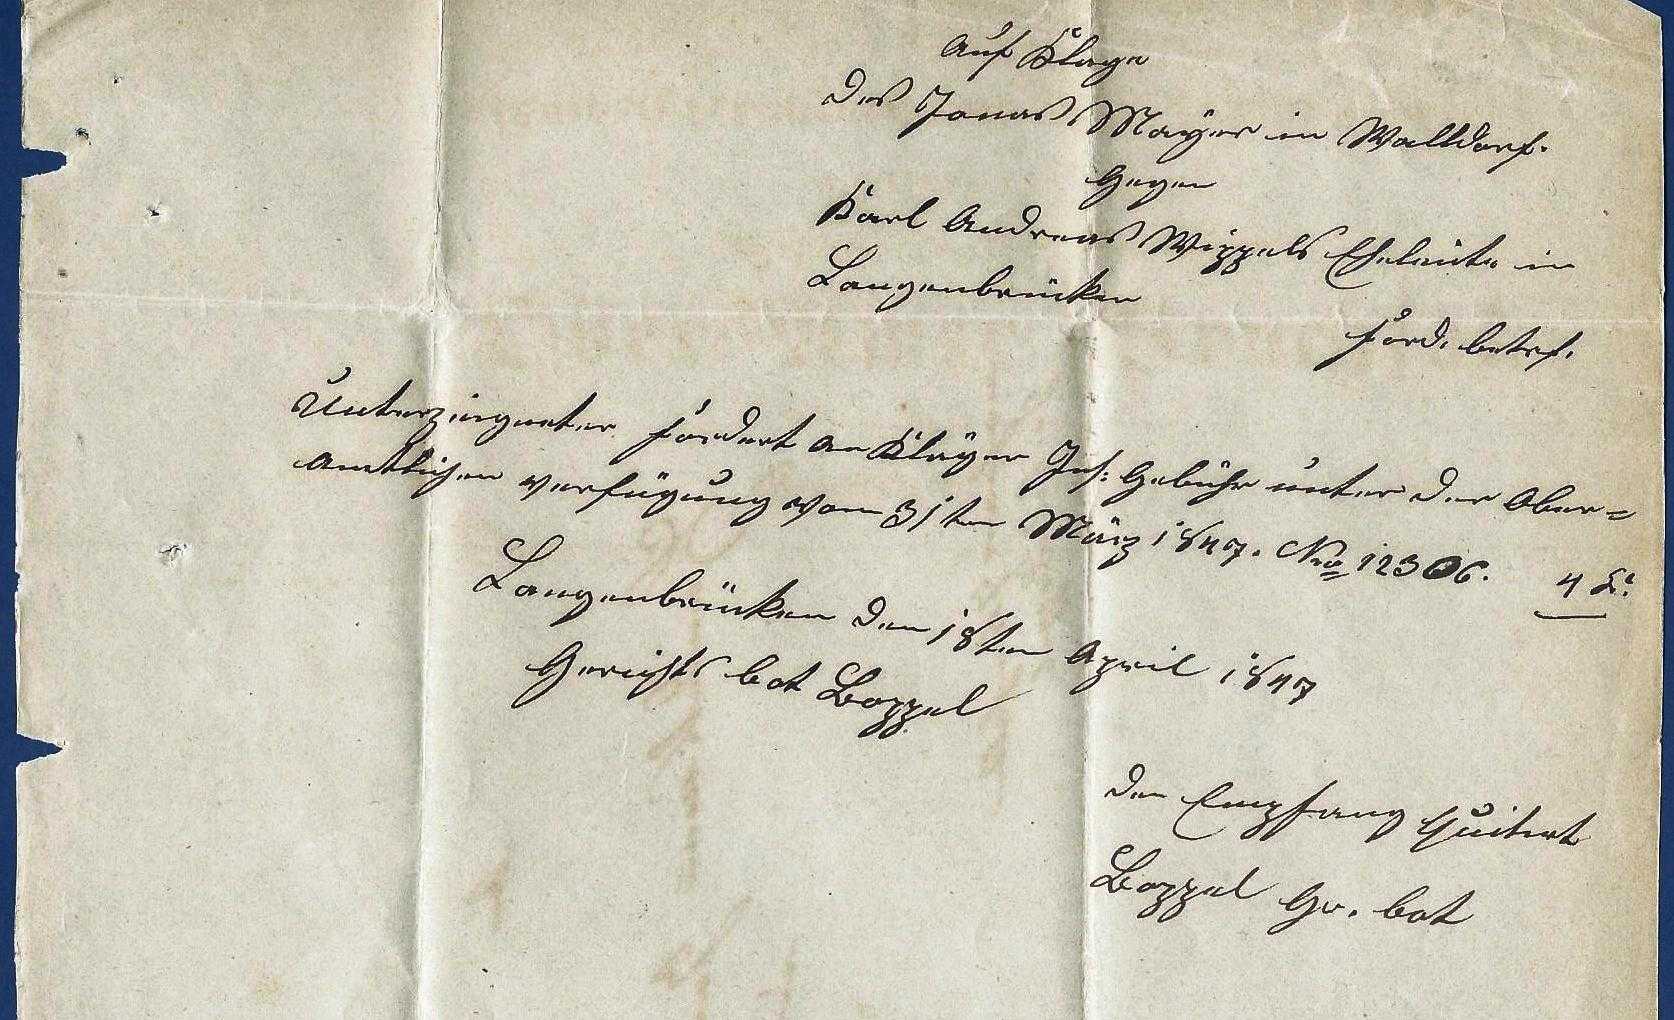 Auf Klage
des Jonas Mayer in Walldorf.
Gegen
Karl Andreas Wippels Eheleute in
Langenbrücken
ford. betrf.
Unterzeigneter fordert an Kläger Ins. Gebühr unter der Ober=
amtlichen verfügung vom 31ten März 1847. Nro 12306. 4 x.
Langenbrücken den 18ten April 1847
Gerichts bot Boppel
den Empfang Quitirt
Boppel Gr. bot